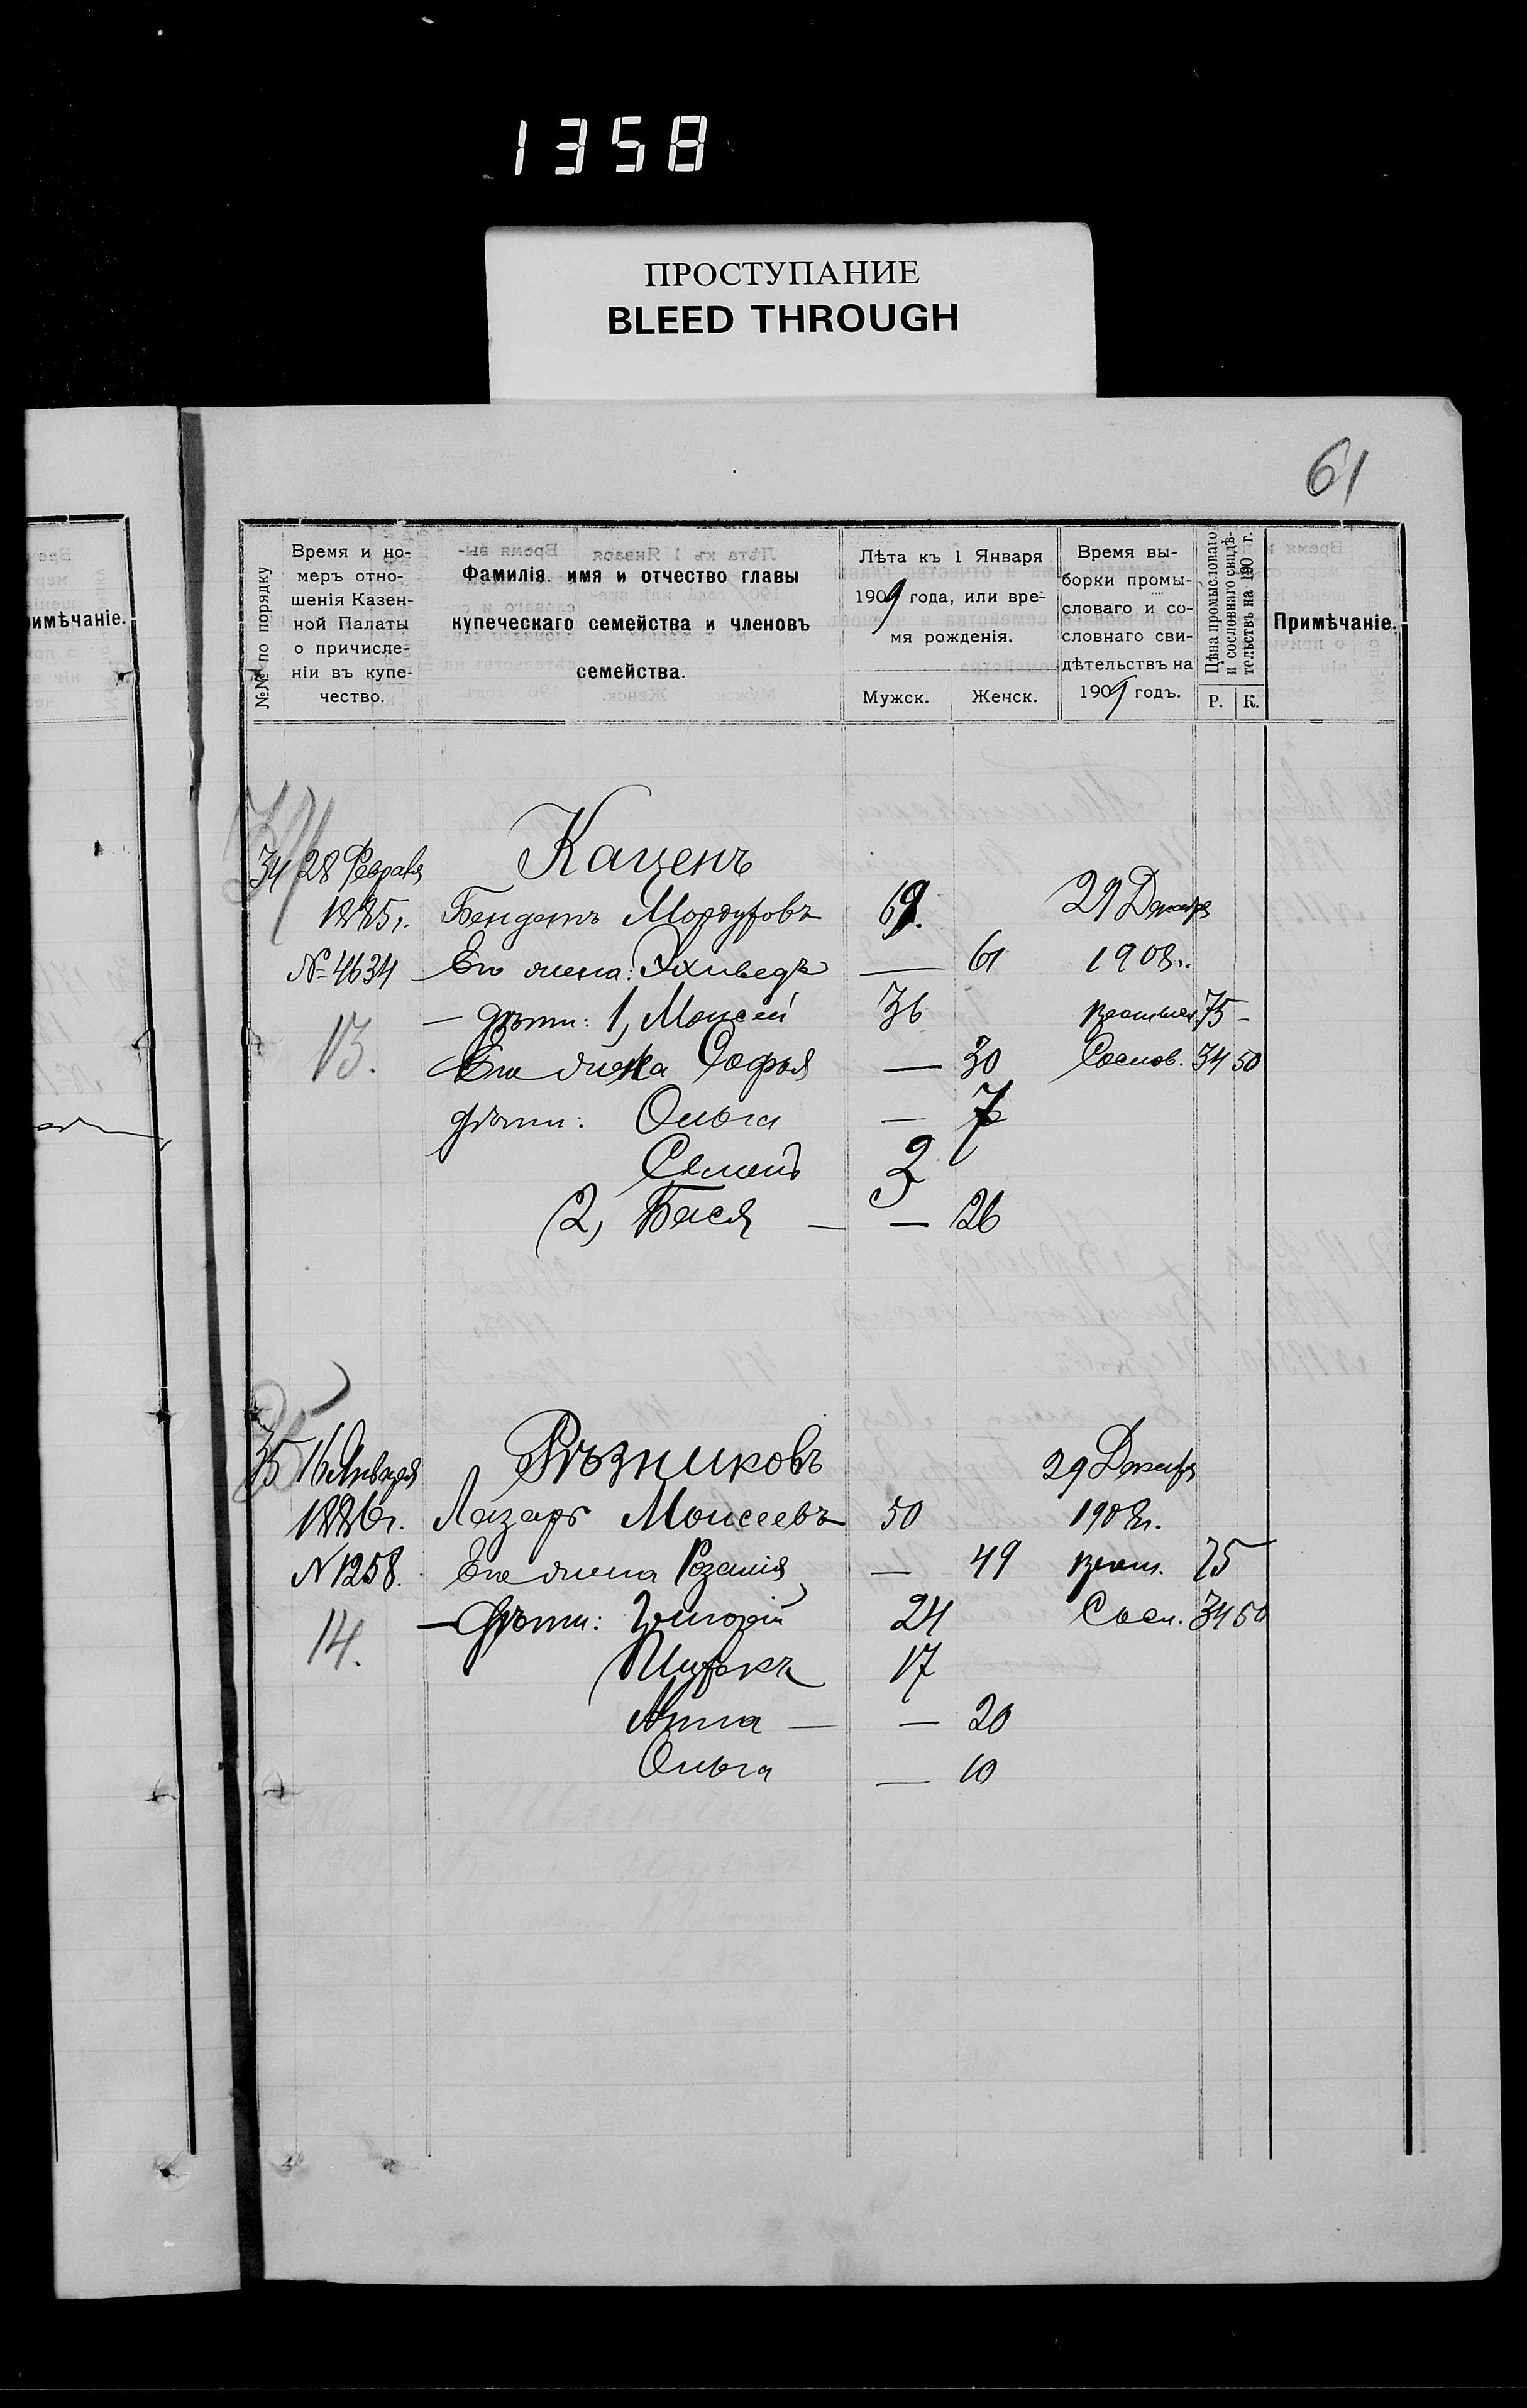 1358
ПРОСТУПАНИЕ
BLEED THROUGH
61
имѣчаніе.
№№ по порядку
Время и но-
меръ отно-
шенія Казен-
ной Палаты
о причисле-
ніи въ купе-
чество.
Фамилія. имя и отчество главы
купеческаго семейства и членовъ
семейства.
Лѣта къ 1 Января
1909 года, или вре-
мя рожденія.
Мужск.
Женск.
Время вы-
борки промы-
словаго и со-
словнаго сви-
дѣтельствъ на
1909 годъ.
Цѣна промысловаго
и сословнаго свидѣ-
тельствъ на 190 г.
Р. К.
Примѣчаніе.
34 28 Февраля Каценъ
1885г. Мордуховъ 69. 29 Декабря
№ 4634 Его жена: 61 1908г.
— дѣти: 1, Моисей 36 75 —
13. Его жена Софья — 30 Сослов. 34 50
дѣти: Ольга — 7
Семенъ 3
2, Бася — — 26
35 16 Января Рѣзниковъ 29 Декабря
1886г. Лазарь Моисеевъ 50 1908г.
№ 1258. Его жена Розалія — 49 75
— дѣти: Григорій 24 Сосл. 34 50
14. 17
Анна — — 20
Ольга — 10